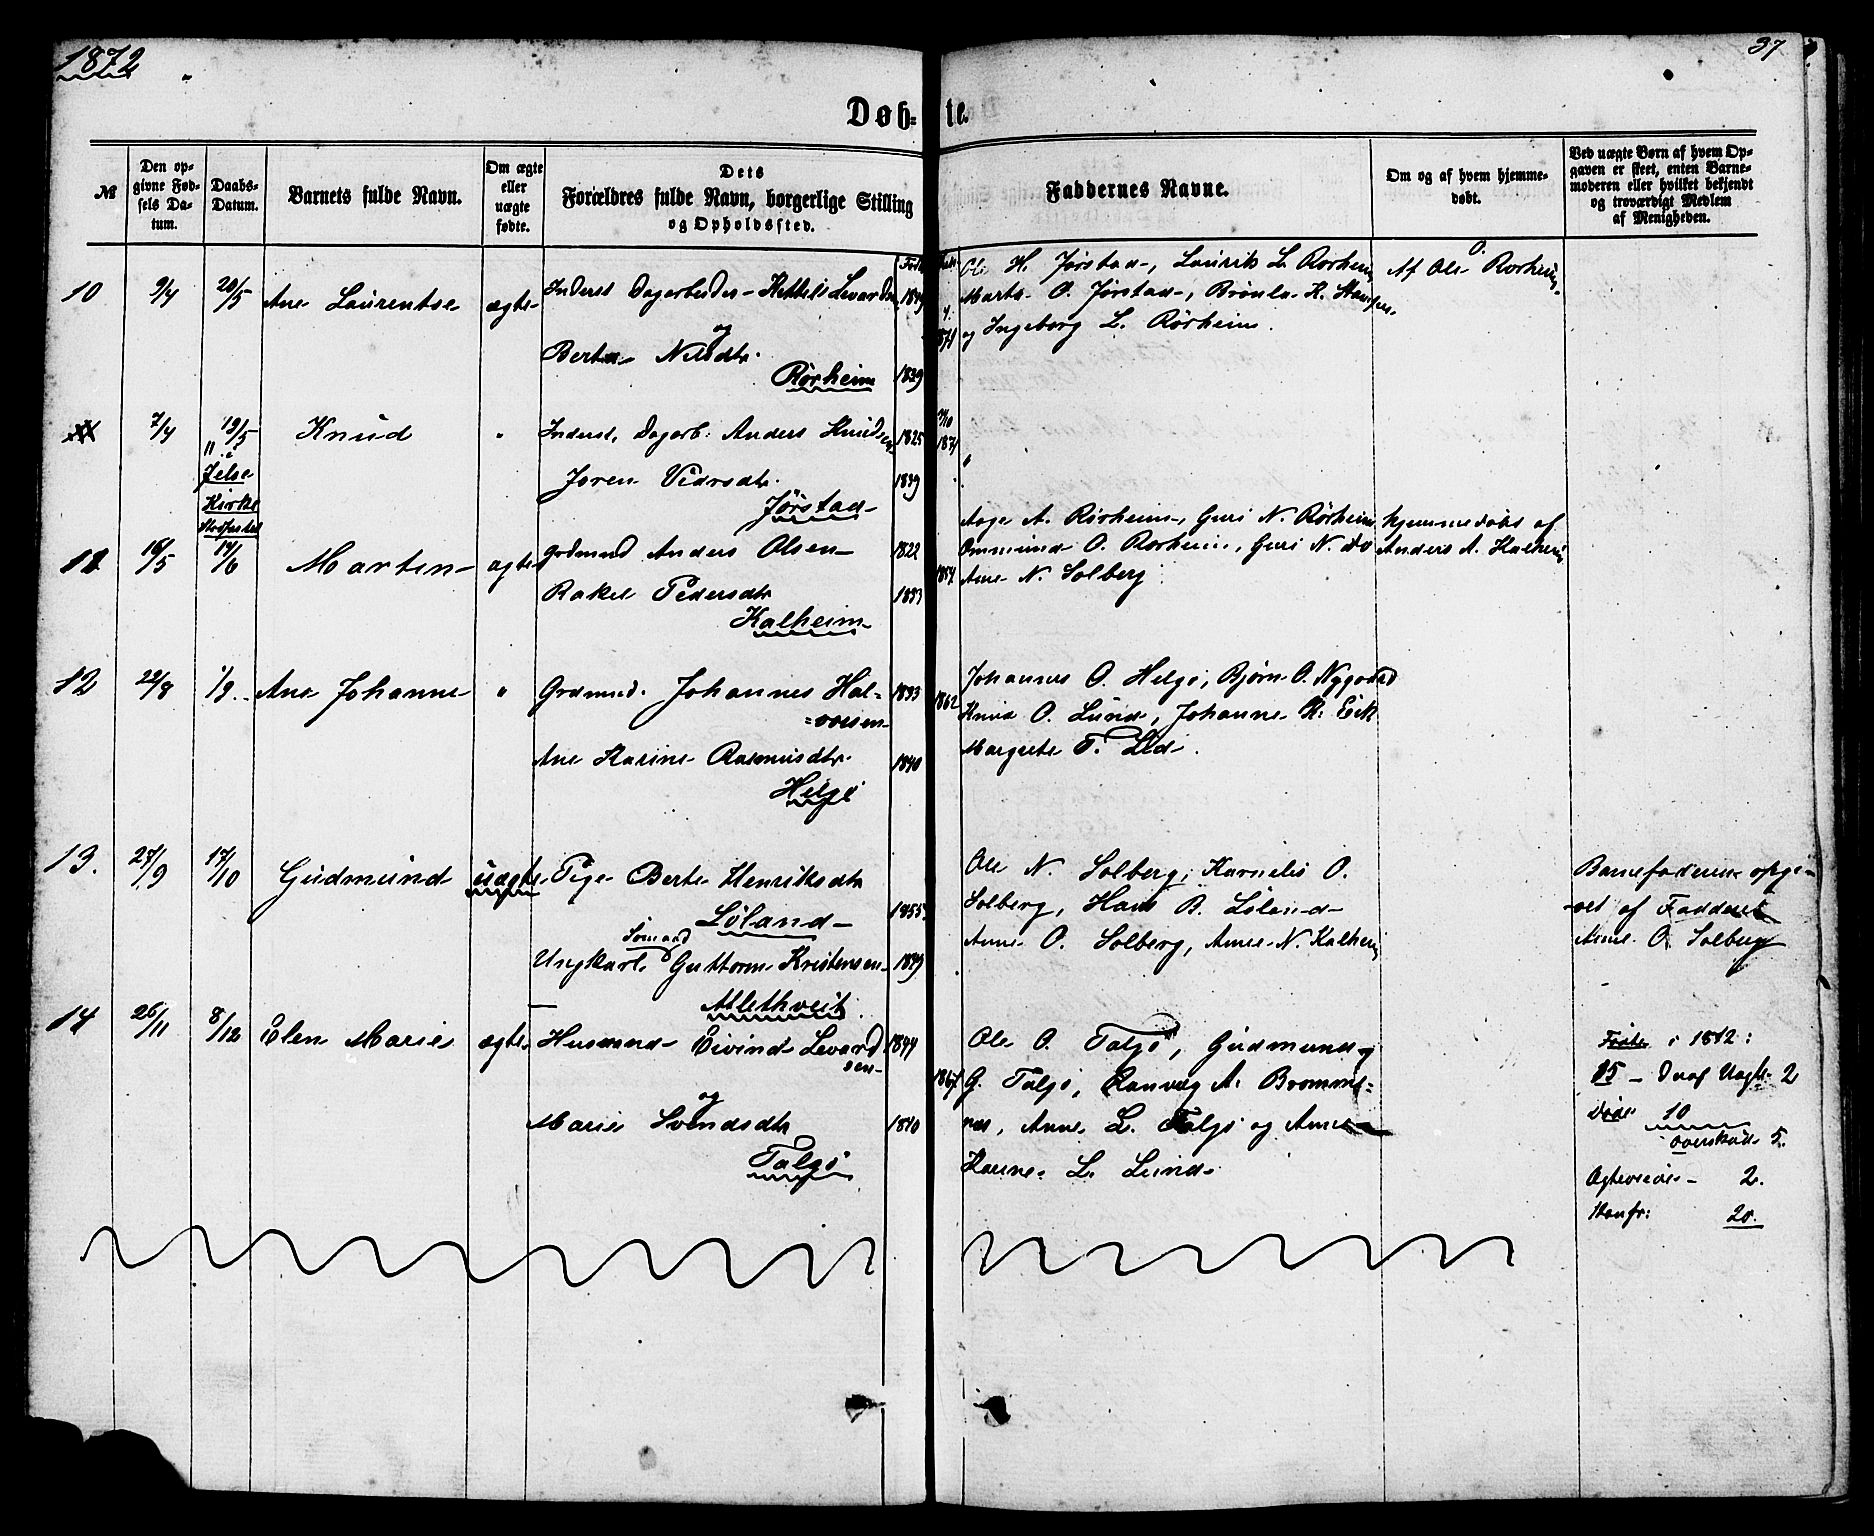 1872
37
Døb-
te.
№
Den op-
givne Fød-
sels Da-
tum.
Daabs-
Datum.
Barnets fulde Navn.
Om ægte
eller
uægte
fødte.
Dets
Forældres fulde Navn, borgerlige Stilling
og Opholdssted.
Faddernes Navne.
Om og af hvem hjemme-
døbt.
Ved uægte Børn af hvem Op-
gaven er skeet, enten Barne-
moderen eller hvilket bekjendt
og troværdigt Medlem
af Menigheden.
10 9/4 20/5 Ane Laurentse ægte
Inderst Dagarbeider
og
Berta Nilsdtr.
Rørheim 1839
Ole H. Jørstad, Laurits L. Rørheim
Marta O. Jørstad,
og Ingeborg L. Rørheim.
Af Ole O. Rorheim
7/4 19/5 Knud "
Inderst, Dagarb: Anders Knudsen 1825
"i
Jelse
Kirke
Joren Vidrsdtr. 1839
Jørstad
11 16/5 14/6 Martin ægte
Grdmand Anders Olsen 1822
Rakel Pedersdtr 1833
Kalheim
Aage A. Rørheim, Guri N. Rørheim
Ommund O. Rorheim, Guri N. do
Ane N. Solberg
hjemmedøbt af
Anders A. Kalheim
12 22/8 1/9. Ane Johanne "
Grdmnd. Johannes Hal= 1833
=vorsen
Ane Karine Rasmusdtr. 1840
Helgø
1862
Johannes O. Helgø, Bjørn O. Nygaard
Knud O. Lund, Johanne K. Eik
Margrete T. Lid.
13. 27/9 17/10 Gudmund uægte
Pige Berte Henriksdtr
Løland 1855
Sømand
Ungkarl Guttorm Kristensen 1849
Atlethveit
Ole N. Solberg, Kornelis O.
Solberg, Hans R. Løland
Anne O. Solberg, Anne N. Kalheim
Barnefaderen opgi-
vet af Fadderet
Anne O. Solberg
14 26/11 8/12 Elen Marie ægte
Husmand Eivind Levard 1844
sen
og
Marie Svendsdtr 1840
Talgø
1867
Ole O. Talgø, Gudmund
G. Talgø, Ranveig A. Bromme=
næs, Anne L. Talgø og Anne
Karine L. Lund
Fødte i 1872:
15 - Deraf Uægte 2
Døde 10
Overskud 5.
Ægteviede - 2.
Konfr: 20.